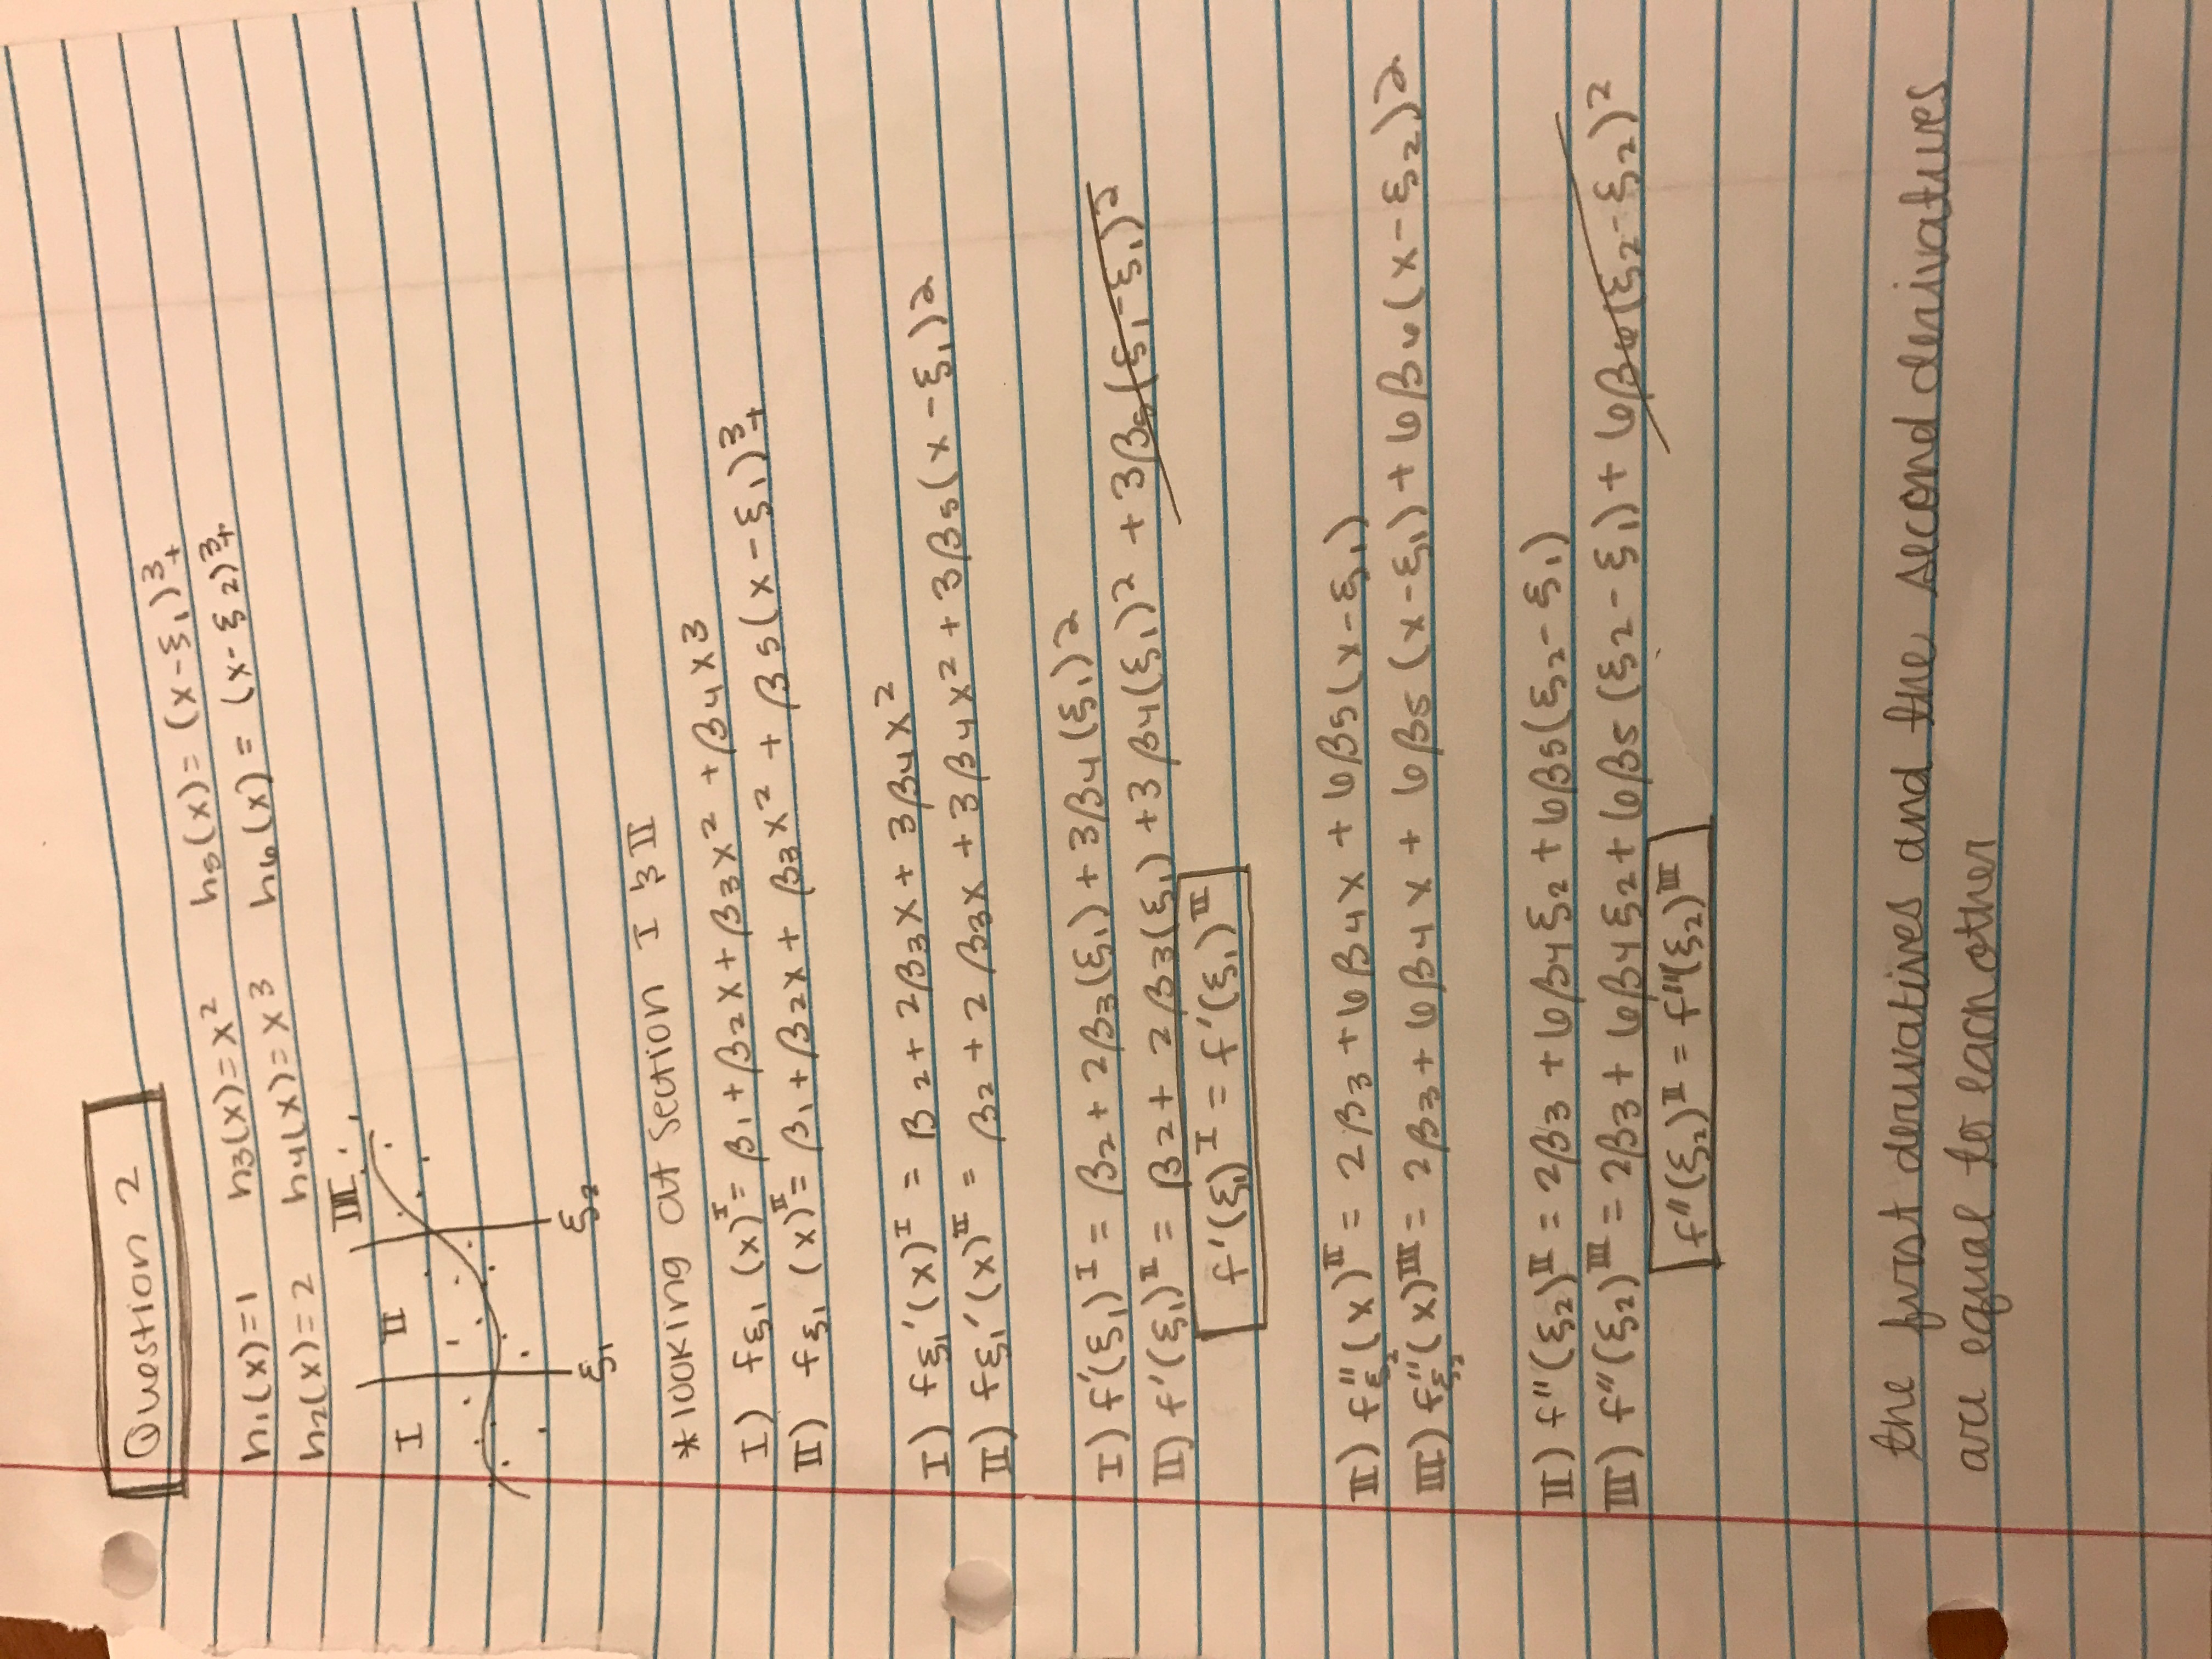 Question 2
h₁(x)=1 h3(x)=x² h5(x)=(x-ξ₁)³₊
h₂(x)=2 h4(x)=x3 h6(x)=(x-ξ2)³₊
I II III
ξ₁ ξ₂
*looking at section I & II
I) fξ₁(x)ᴵ= β₁+β₂x+β3x²+β4x3
II) fξ₁(x)ᴵᴵ= β₁+β₂x+β3x²+β5(x-ξ₁)³₊
I) fξ₁'(x)ᴵ = β2+2β3x+3β4x²
II) fξ₁'(x)ᴵᴵ = β2+2β3x+3β4x²+3β5(x-ξ₁)2
I) f'(ξ₁)ᴵ = β2+2β3(ξ₁)+3β4(ξ₁)2
II) f'(ξ₁)ᴵᴵ = β2+2β3(ξ₁)+3β4(ξ₁)²+3β5(ξ₁-ξ₁)²
f'(ξ₁)ᴵ = f'(ξ₁)ᴵᴵ
II) f"ξ₂(x)ᴵᴵ = 2β3+6β4x+6β5(x-ξ₁)
III) f"ξ₂(x)ᴵᴵᴵ = 2β3+6β4x+6β5(x-ξ₁)+6β6(x-ξ₂)2
II) f"(ξ₂)ᴵᴵ = 2β3+6β4ξ2+6β5(ξ2-ξ₁)
III) f"(ξ₂)ᴵᴵᴵ = 2β3+6β4ξ2+6β5(ξ2-ξ₁)+6β6(ξ2-ξ2)²
f"(ξ₂)ᴵᴵ = f"(ξ₂)ᴵᴵᴵ
the first derivatives and the second derivatives
are equal to each other